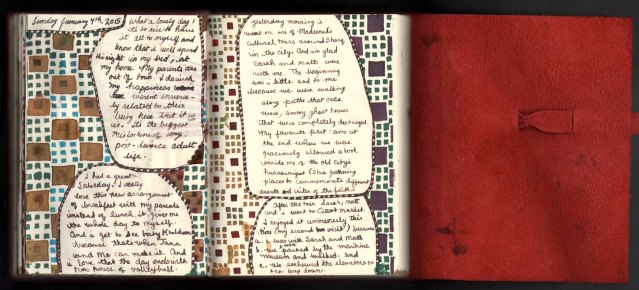 Sunday January 4th, 2015
What a lovely day!
to be nice to have
it all to myself and
know that i will spend
the night in my bed, at
my home. My parents are
out of town. I do wish
my happiness
were
related to their
being here but it
is. It's the biggest
misfortune of my
post-divorce adult
life.
I had a great
Saturday. I really
love this new arrangement
of breakfast with my parents
instead of lunch. It gives me
the whole day to myself.
And i get to see baby Khaldoun
because that's when Tana
and Mo can make it. And
i love that the day ends with
two hours of volleyball.
yesterday morning i
went on one of Madeenah's
cultural tours around Sharq
in the city. And im glad
Sarah and Matt were
with me. The beginning
was a little sad to me
because we were walking
along paths that once
were, among ghost houses
that were completely destroyed.
My favorite part came at
the end where we were
graciously allowed a look
inside one of the old city's
husainiyas (Shia gathering
places to commemorate different
events and rites of the faith.
After the tour Sarah, Matt
and i went to Cicott market.
I enjoyed it immensely this
time (my second visit) because
a. i was with Sarah and Matt
b. we parked by the maritime
museum and walked. and
c. we eschewed the elevators on
the way down.